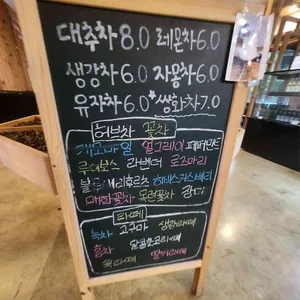 대추차 8.0 레몬차 6.0
생강차 6.0 자몽차 6.0
유자차 6.0 * 쌍화차 7.0
허브차 꽃차
캐모마일 얼그레이 페퍼민트
루이보스 라벤더 로즈마리
블루베리 히비스커스
매화꽃차 목련꽃차 장미
라떼
녹차 고구마
홍차